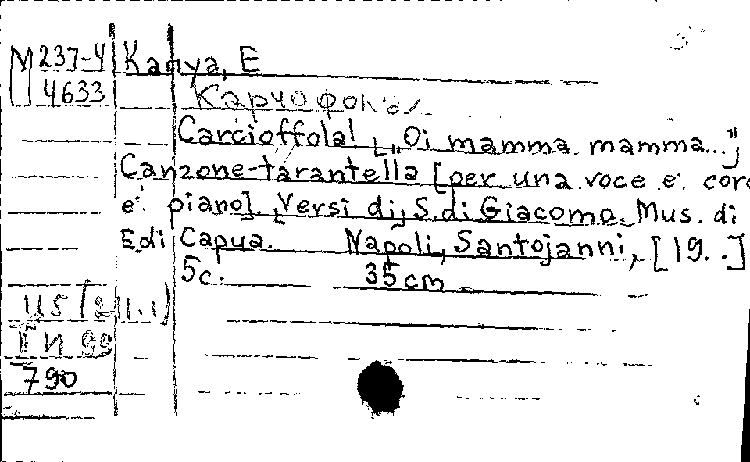 М 237-4 Капуа, Е
4633
Carcioffola! [„Oi mamma mamma..."]
Canzone-tarantella [per una voce e coro
e piano]. [Versi di] S. di Giacomo. Mus. di
E. di Capua. Napoli, Santojanni, [19..]
5 c. 35 cm
790